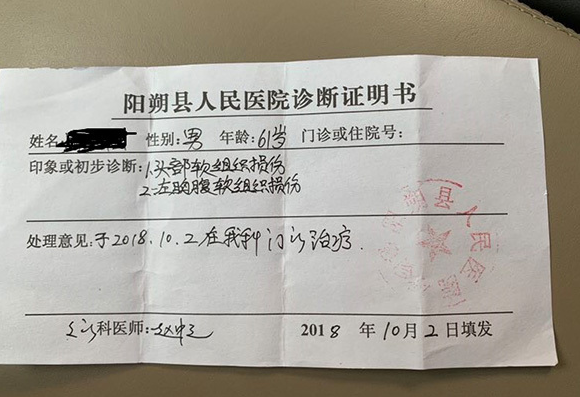 阳朔县人民医院诊断证明书
姓名 性别:男 年龄:61岁 门诊或住院号:
印象或初步诊断:1.头部软组织损伤
2.左胸腹软组织损伤
处理意见:于2018.10.2在我科门诊治疗.
科医师:
2018年10月2日填发
县人民医院